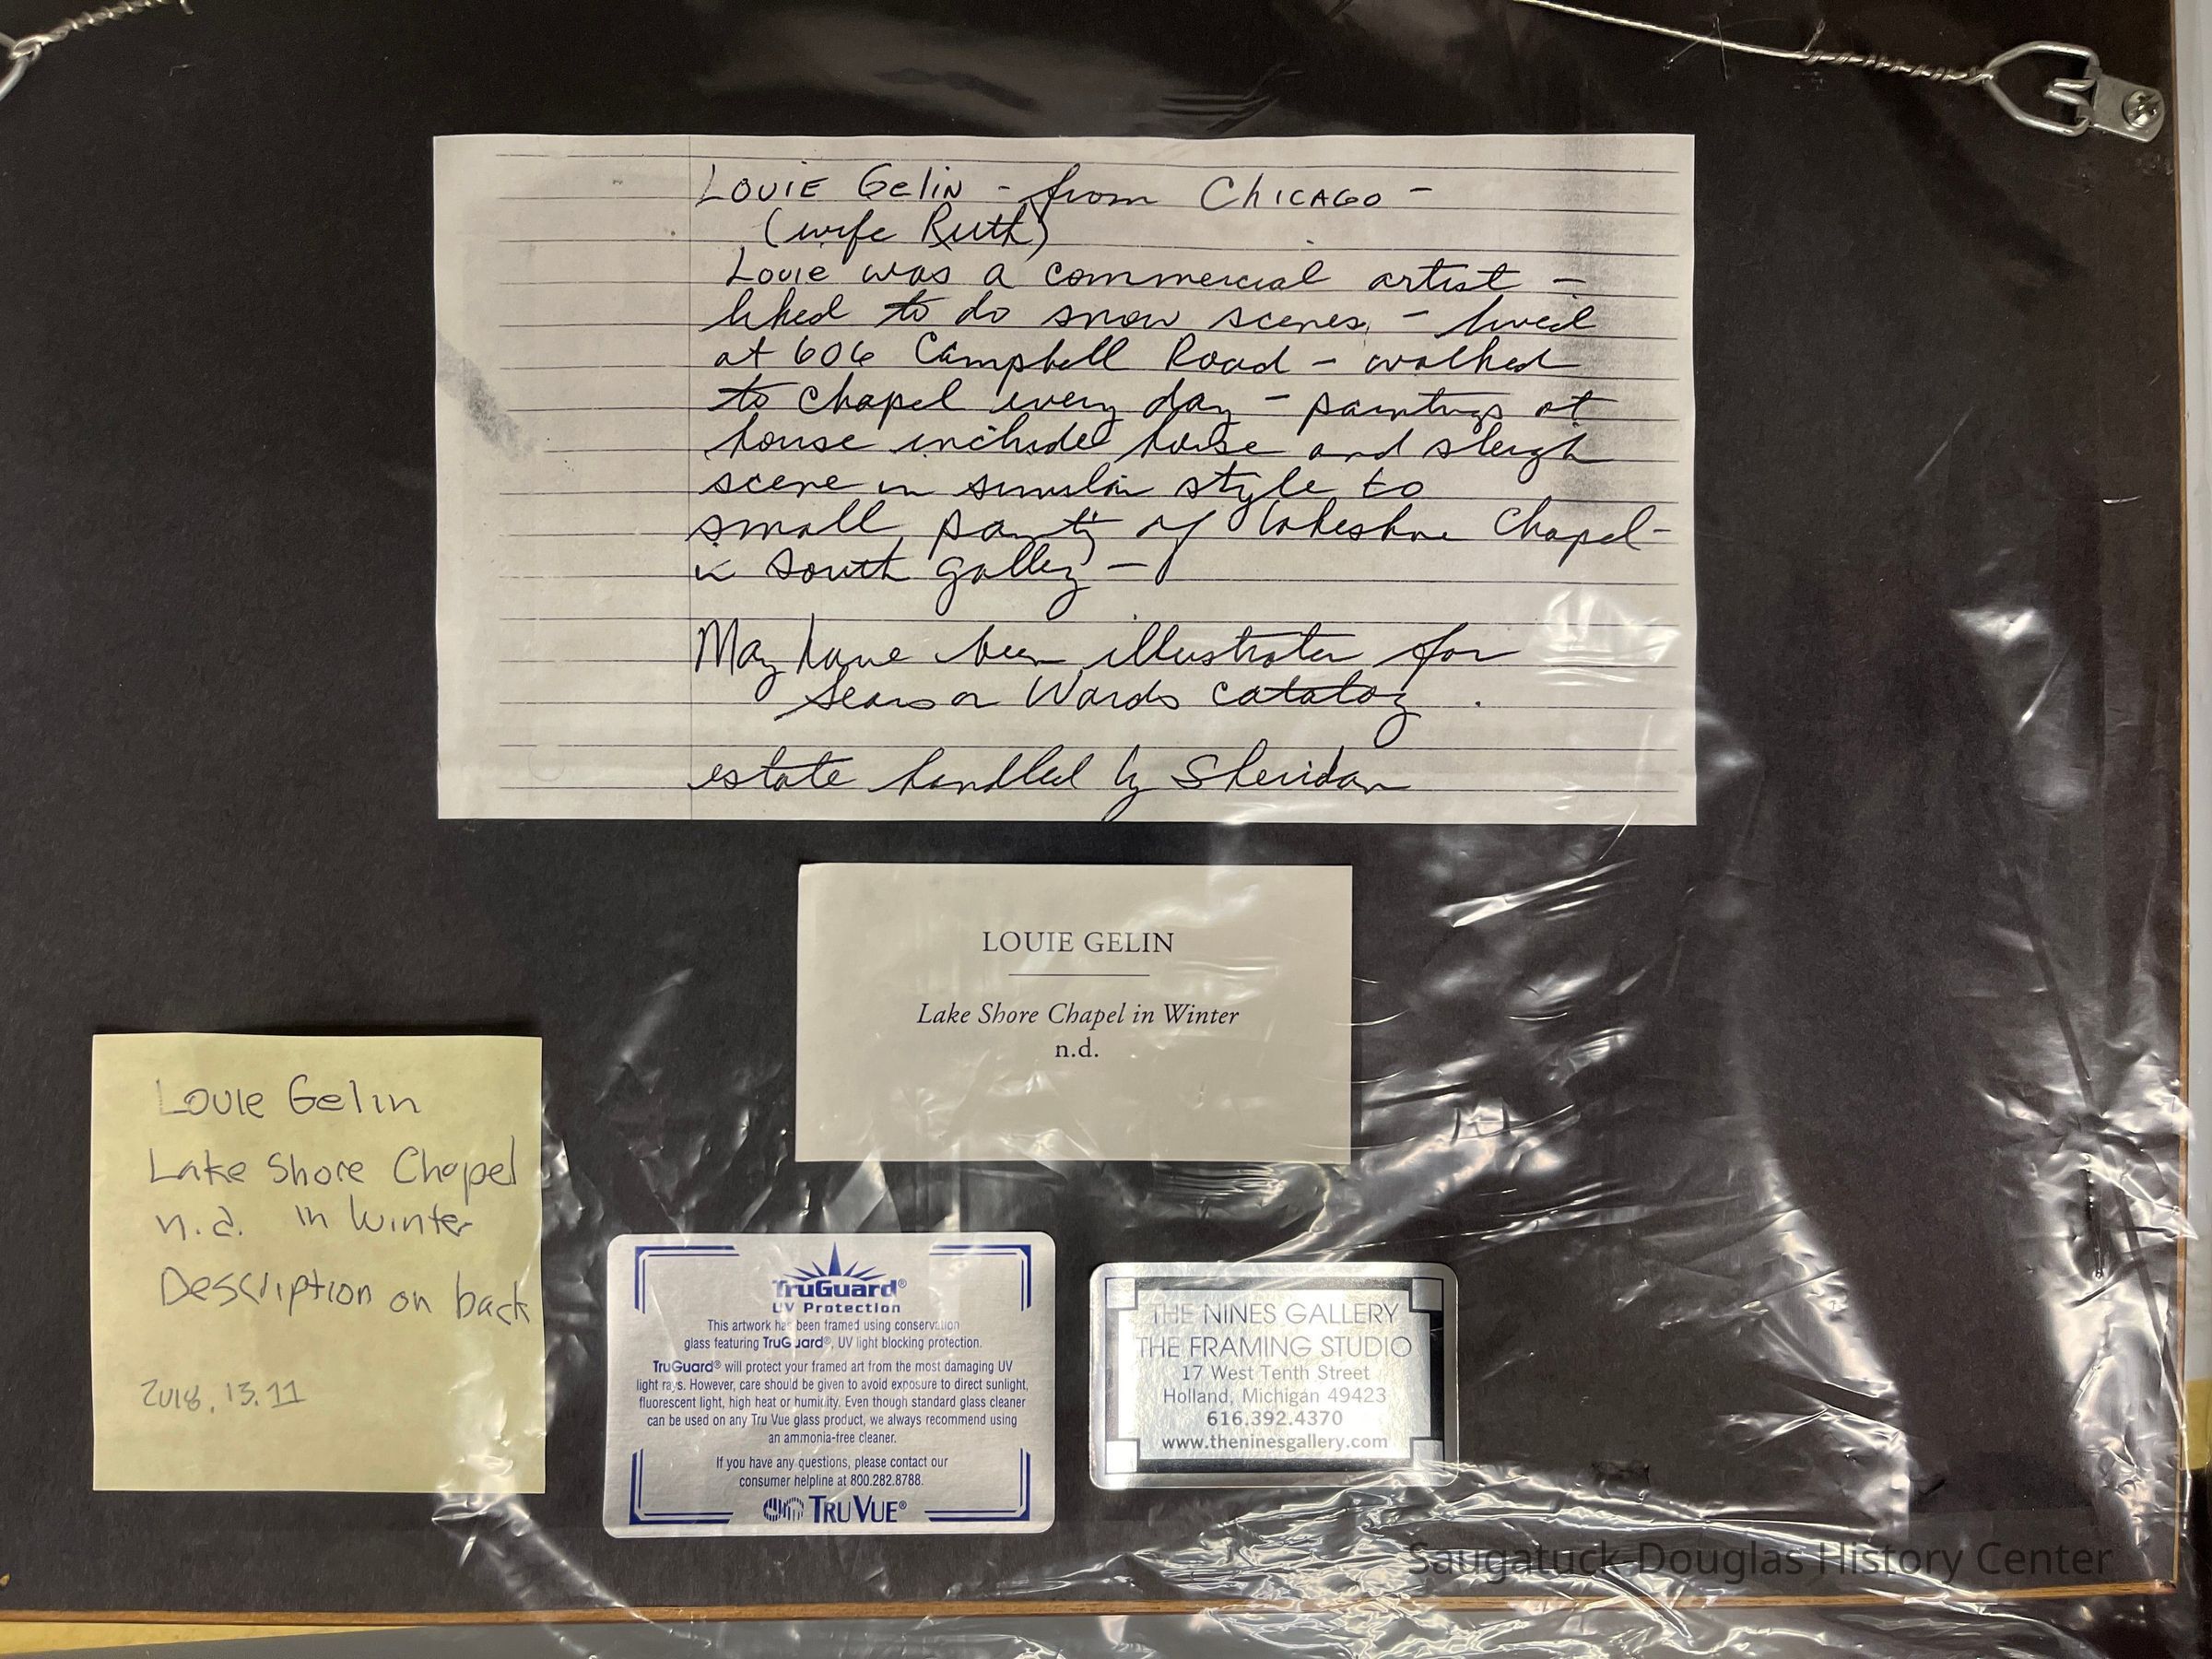 LOUIE GeliN - from ChICAGO -
(wife Ruth)
Louie was a commercial artist -
liked to do snow scenes, - lived
at 606 Campbell Road - walked
to chapel every day - paintings at
house include horse and sleigh
scene in similar style to
small, paintg of lakeshore Chapel -
in South gallery -
May have been illustrator for
Sears or Wards catalog.
estate handled by Sheridan
LOUIE GELIN
Lake Shore Chapel in Winter
n.d.
Louie Gelin
Lake Shore Chapel
n.d. in Winter
Description on back
2018.13.11
TruGuard®
UV Protection
This artwork has been framed using conservation
glass featuring TruGuard®, UV light blocking protection.
TruGuard® will protect your framed art from the most damaging UV
light rays. However, care should be given to avoid exposure to direct sunlight,
fluorescent light, high heat or humidity. Even though standard glass cleaner
can be used on any Tru Vue glass product, we always recommend using
an ammonia-free cleaner.
If you have any questions, please contact our
consumer helpline at 800.282.8788.
TRU VUE®
THE NINES GALLERY
THE FRAMING STUDIO
17 West Tenth Street
Holland, Michigan 49423
616.392.4370
www.theninesgallery.com
Saugatuck-Douglas History Center